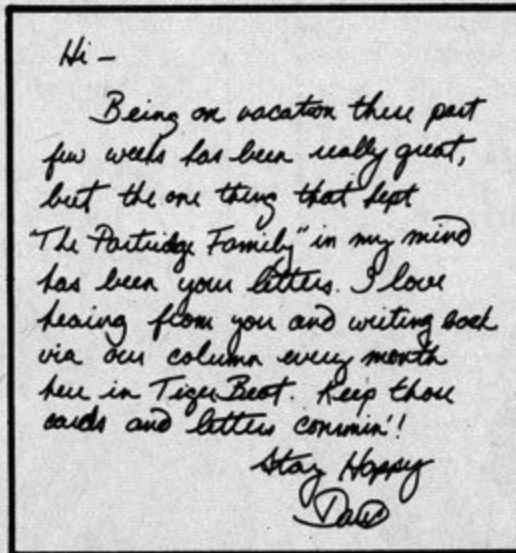 Hi –
Being on vacation these past
few weeks has been really great,
but the one thing that kept
"The Partridge Family" in my mind
has been your letters. I love
hearing from you and writing back
via our column every month
here in Tiger Beat. Keep those
cards and letters commin'!
Stay Happy
David